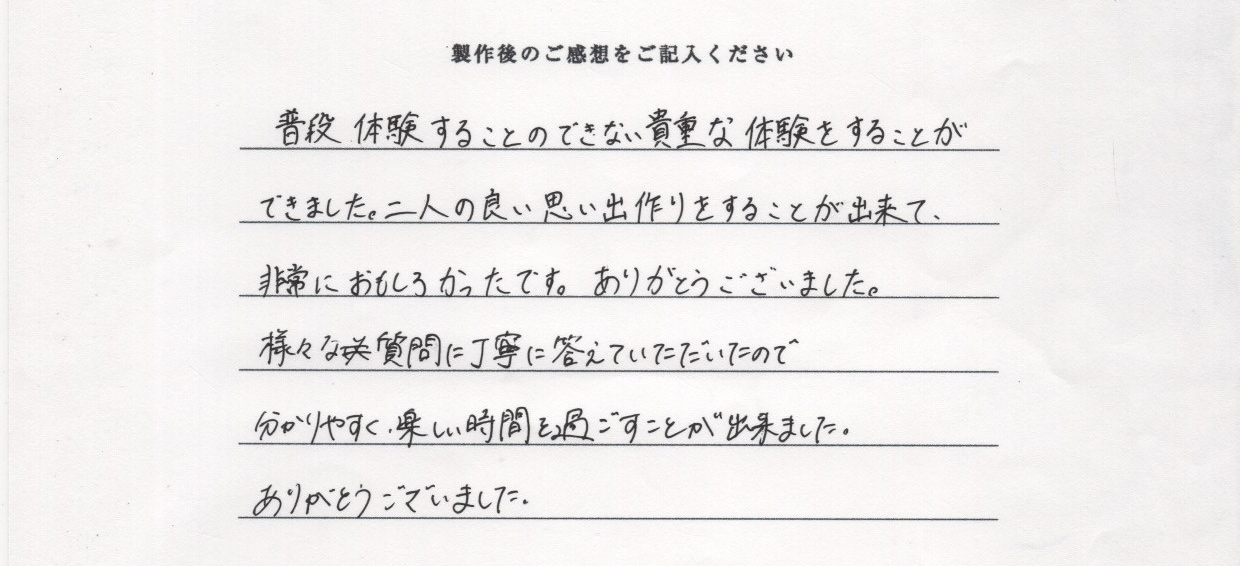 製作後のご感想をご記入ください
普段 体験することのできない貴重な体験をすることが
できました。二人の良い思い出作りをすることが出来て、
非常におもしろかったです。ありがとうございました。
様々な質問に丁寧に答えていただいたので
分かりやすく、楽しい時間を過ごすことが出来ました。
ありがとうございました。